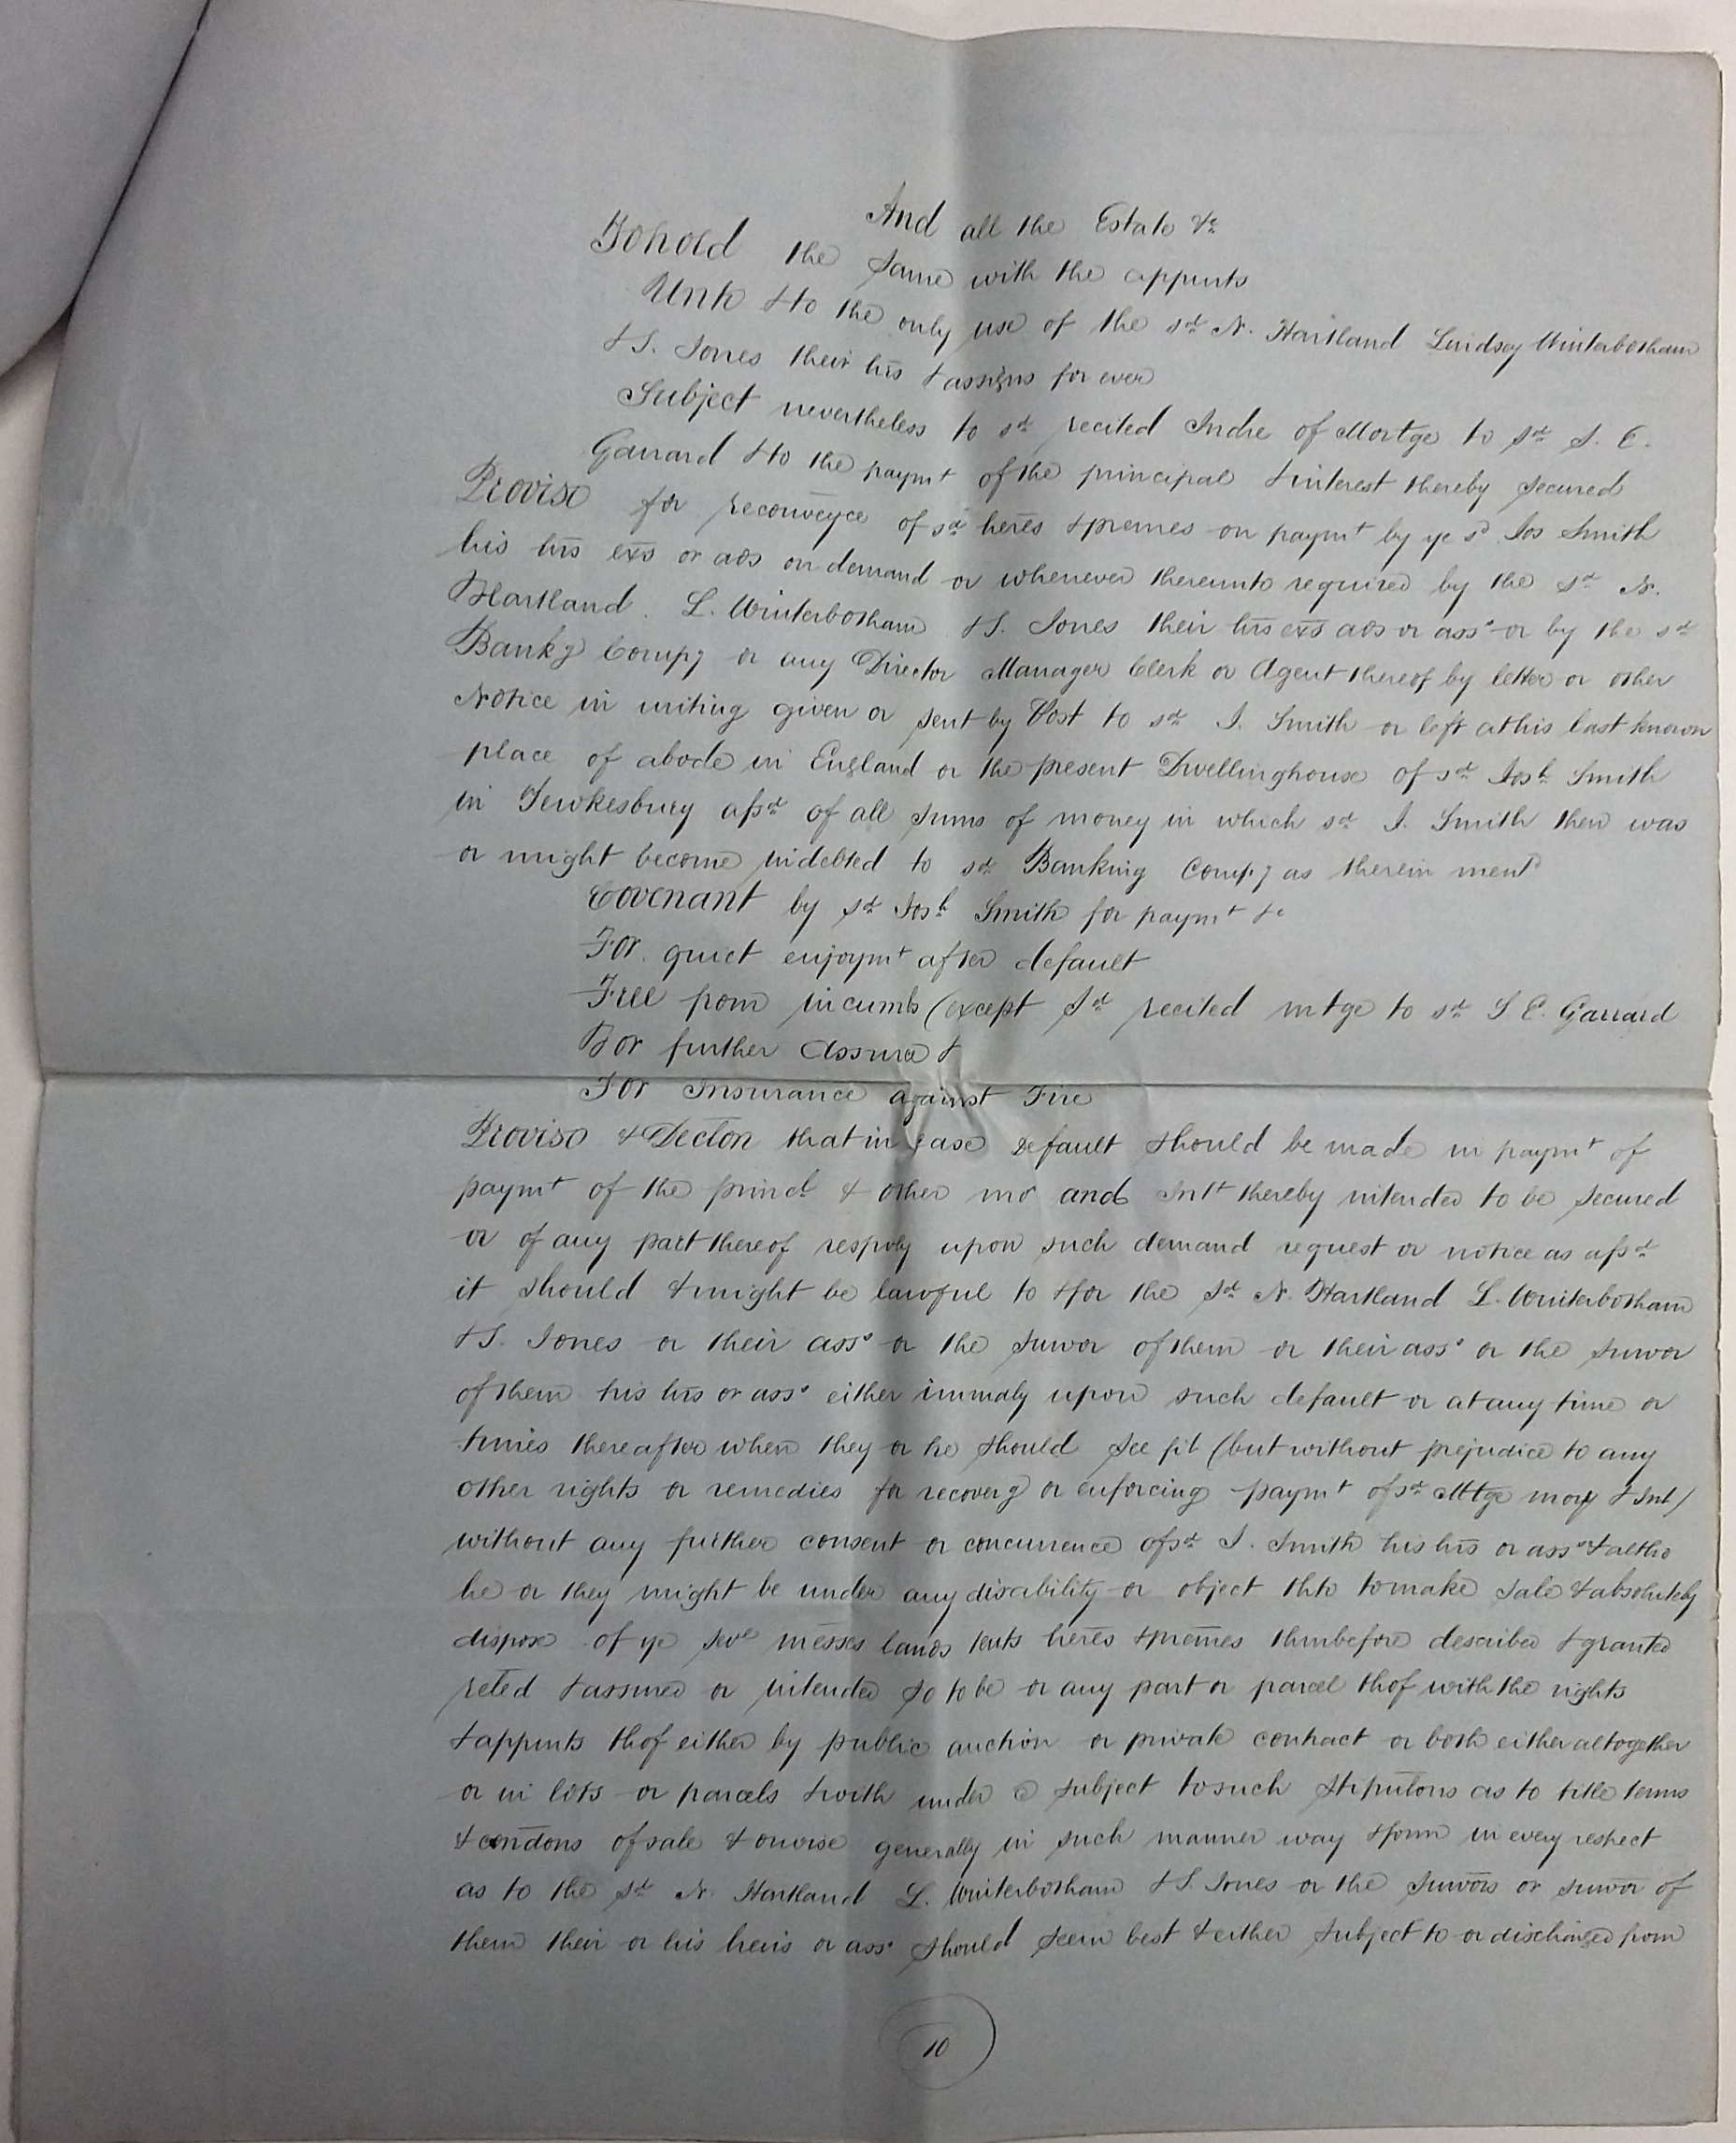 And all the Estate &c
To hold the same with the appurts
Unto & to the only use of the sd N. Hartland Lindsey Winterbotham
& S. Jones their hrs & assigns for ever
Subject nevertheless to sd recited Indre of Mortge to sd S. E.
Garrard & to the paymt of the principal & interest thereby secured
Proviso for reconveyce of sd heres & premes on paymt by ye sd Jos Smith
his hrs exs or ads on demand or whenever thereunto required by the sd N.
Hartland. L. Winterbotham & S. Jones their hrs exs ads or asss or by the sd
Bankg Compy or any Director Manager Clerk or Agent thereof by letter or other
Notice in writing given or sent by Post to sd J. Smith or left at his last known
place of abode in England or the present Dwellinghouse of sd Josh Smith
in Tewkesbury afsd of all sums of money in which sd J. Smith then was
or might become indebted to sd Banking Compy as therein mentd
Covenant by sd Josh Smith for paymt &c
For quiet enjoymt after default
Free from incumbs (except sd recited mtge to sd S E. Garrard
For further Assurce &
For Insurance against Fire
Proviso & Declon that in case Default should be made in paymt of
paymt of the princl & other mo and Intt thereby intended to be secured
or of any part thereof respvly upon such demand request or notice as afsd
it should & might be lawful to & for the sd N. Hartland L. Winterbotham
& S. Jones or their asss or the survor of them or their asss or the survor
of them his hrs or asss either immaly upon such default or at any time or
times thereafter when they or he should see fit (but without prejudice to any
other rights or remedies for recoverg or enforcing paymt of sd Mtge mony & Int)
without any further consent or concurrence of sd J. Smith his hrs or asss & altho
he or they might be under any disability or object thto to make sale & absolutely
dispose of ye sevl messes lands tents heres & premes thinbefore described & granted
reled & assured or intended so to be or any part or parcel thof with the rights
& appurts thof either by public auction or private contract or both either altogether
or in lots or parcels & with under @ subject to such stipulons as to title terms
& condons of sale & orwise generally in such manner way & form in every respect
as to the sd N. Hartland L. Winterbotham & S. Jones or the survors or survor of
them their or his heirs or asss should seem best & either subject to or discharged from
10